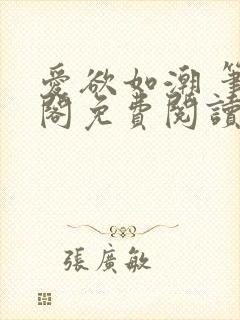 愛欲如潮 筆
閣免費閱讀
張廣敏